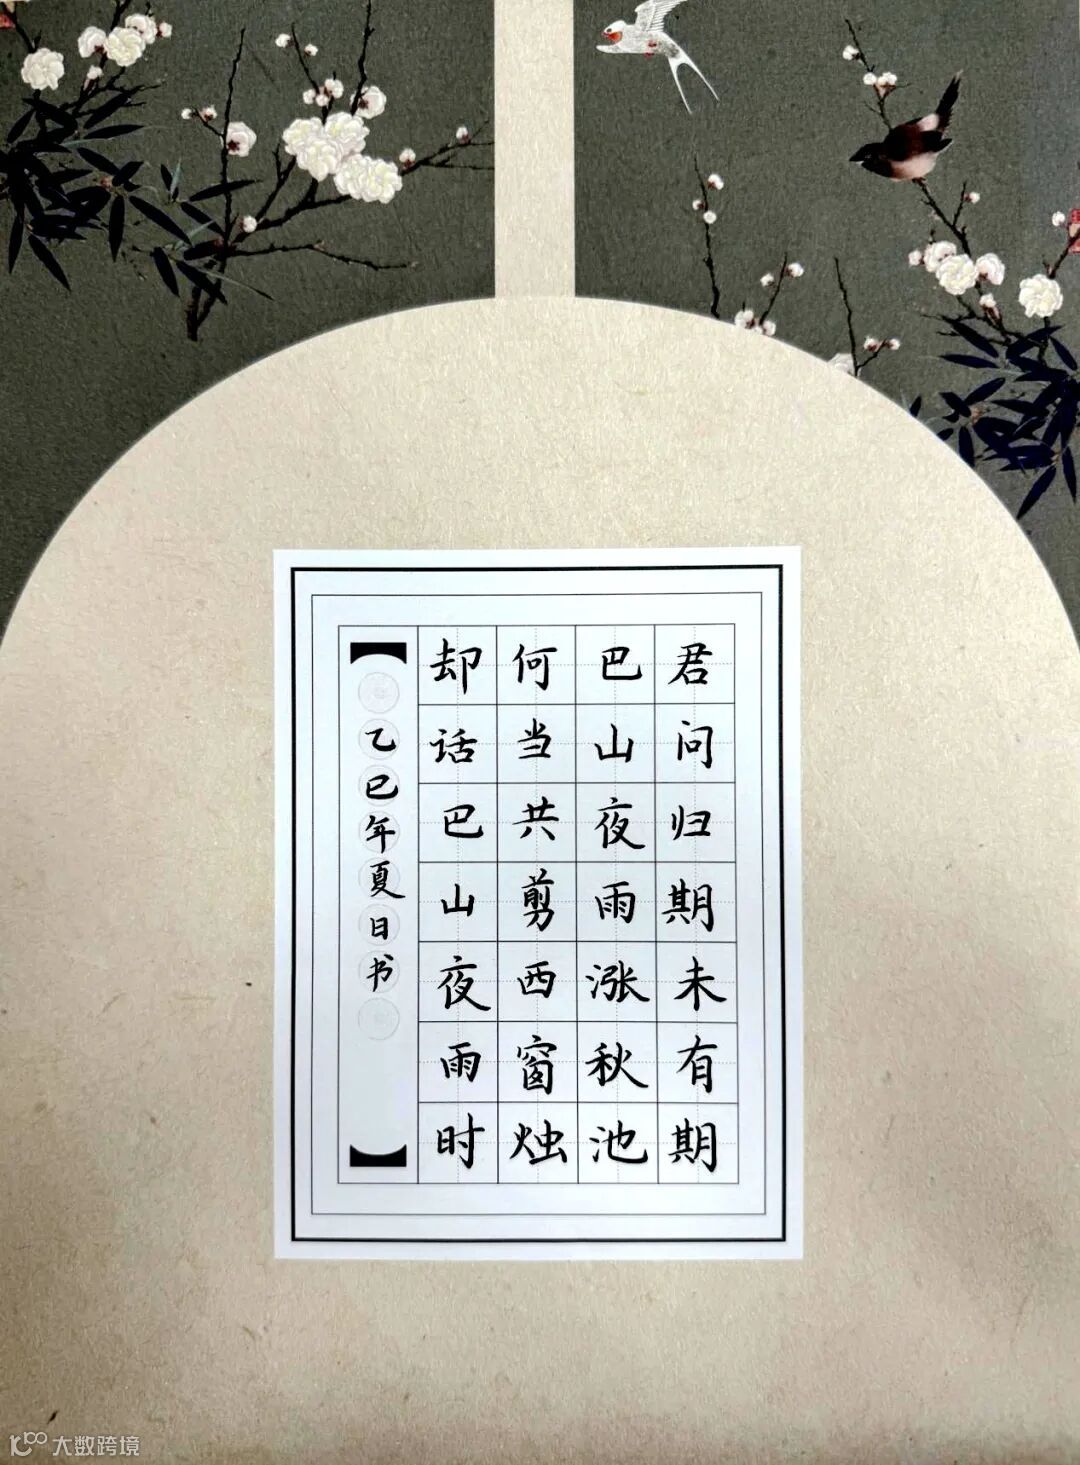 君问归期未有期
巴山夜雨涨秋池
何当共剪西窗烛
却话巴山夜雨时
乙巳年夏日书
大数跨境